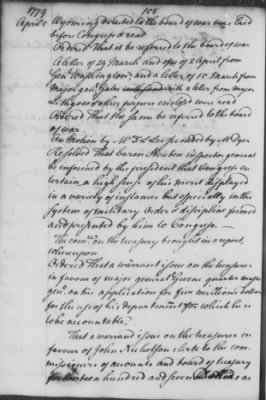 1779 108
April 5 Wyoming directed to the board of war was laid
before Congress & read
Ordered That it be referred to the board of war
A letter of 29 March and one of 2 April from
Gen Washington and a letter of 15 March from
Major gen Gates with a letter from major
Lithgow & other papers enclosed were read
Ordered That the same be referred to the board
of war.
On motion by Mr seconded by Mr Dyer
Resolved That baron Steuben inspector general
be informed by the president that Congress en
tertain a high sense of his merit displayed
in a variety of instances but especially in the
system of military Order & discipline formed
and presented by him to Congress.
The comee on the treasury brought in a report,
whereupon
Ordered That a warrant issue on the treasurer
in favour of major general Green quarter master
genl on his application for five millions Dollars
for the use of his department for which he is
to be accountable,
That a warrant issue on the treasurer in
favour of John Nicholson clerk to the com
missioner of accounts and board of treasury
for a hundred and seven Dollars as